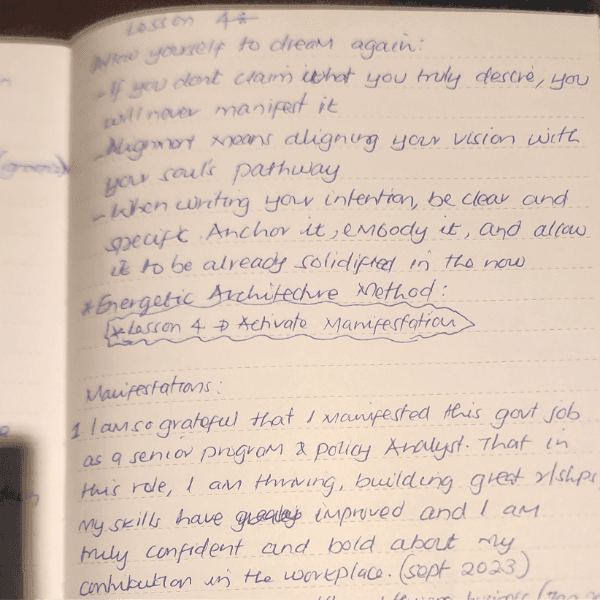 Lesson 4
Allow yourself to dream again:
- If you dont claim what you truly desire, you
will never manifest it
- Alignment means aligning your vision with
your soul's pathway
- When writing your intention, be clear and
specific. Anchor it, embody it, and allow
it to be already solidified in the now
* Energetic Architecture Method:
* Lesson 4 → Activate Manifestation
Manifestations:
1 I am so grateful that I manifested this govt job
as a senior program & policy Analyst. That in
this role, I am thriving, building great r/ships,
my skills have improved and I am
truly confident and bold about my
contribution in the workplace. (sept 2023)